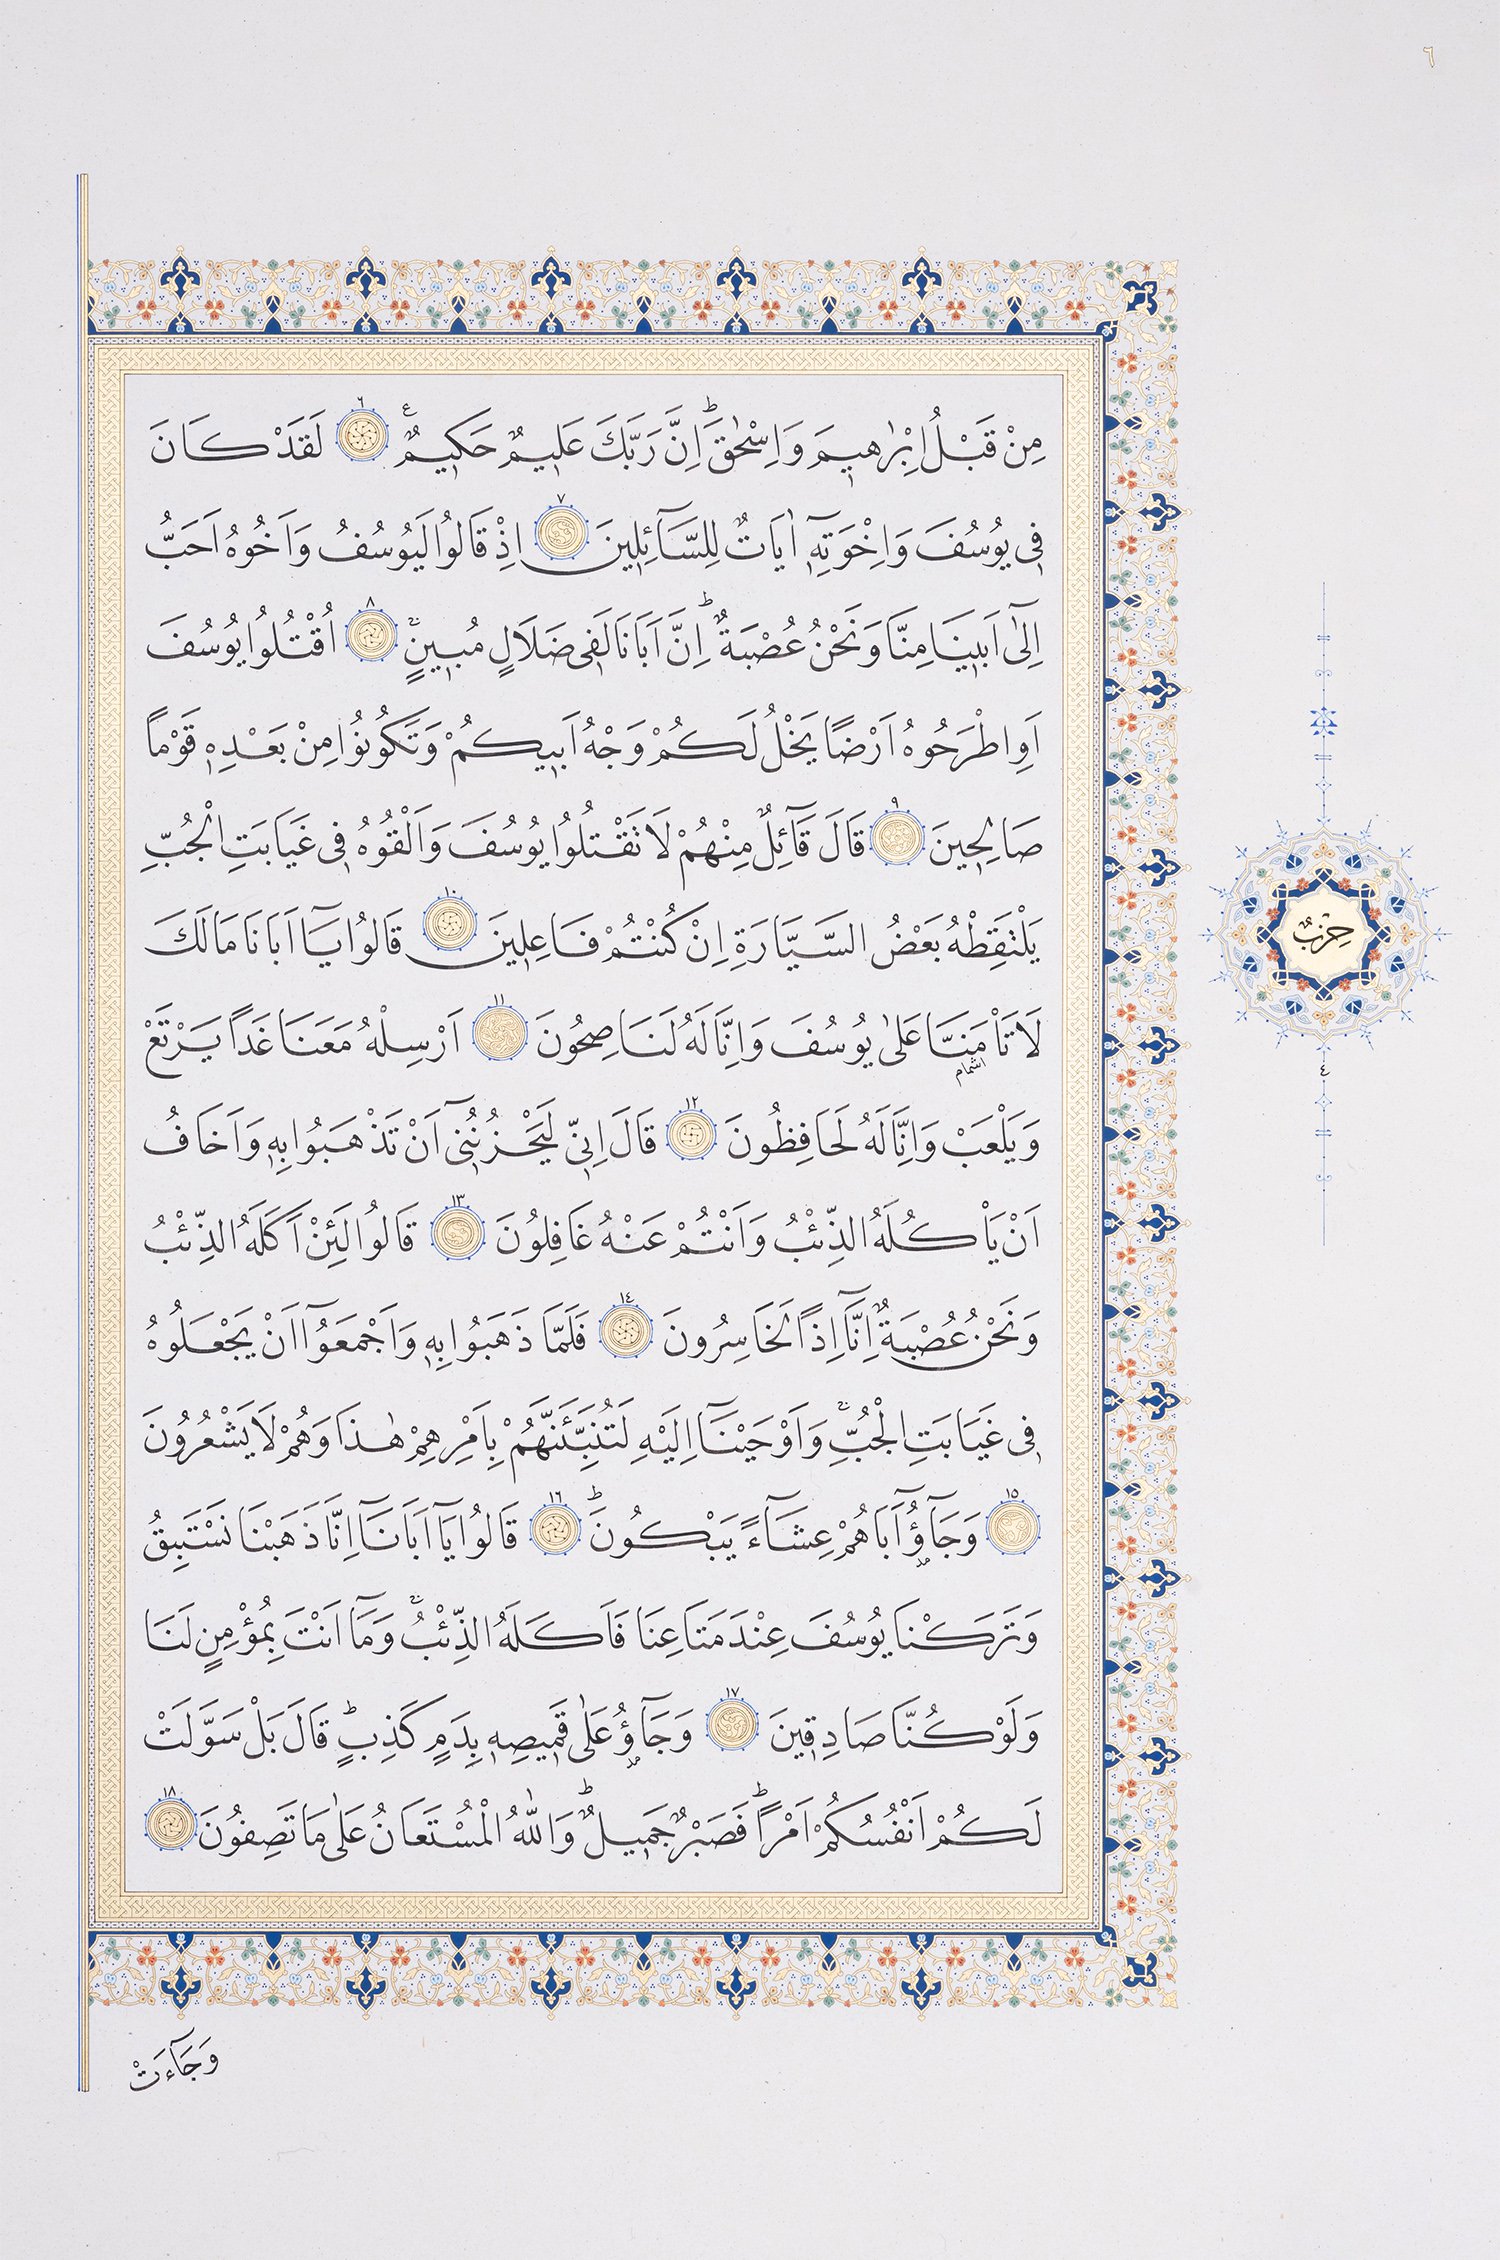 ٦
مِنْ قَبْلُ اِبْرٰهٖيمَ وَاِسْحٰقَۜ اِنَّ رَبَّكَ عَلٖيمٌ حَكٖيمٌࣖ ٦ لَقَدْ كَانَ
فٖى يُوسُفَ وَاِخْوَتِهٖٓ اٰيَاتٌ لِلسَّٓائِلٖينَ ٧ اِذْ قَالُوا لَيُوسُفُ وَاَخُوهُ اَحَبُّ
اِلٰٓى اَبٖينَا مِنَّا وَنَحْنُ عُصْبَةٌۜ اِنَّ اَبَانَا لَفٖى ضَلَالٍ مُبٖينٍۚ ٨ اُقْتُلُوا يُوسُفَ
اَوِ اطْرَحُوهُ اَرْضًا يَخْلُ لَكُمْ وَجْهُ اَبٖيكُمْ وَتَكُونُوا مِنْ بَعْدِهٖ قَوْمًا
صَالِحٖينَ ٩ قَالَ قَٓائِلٌ مِنْهُمْ لَا تَقْتُلُوا يُوسُفَ وَاَلْقُوهُ فٖى غَيَابَتِ الْجُبِّ
يَلْتَقِطْهُ بَعْضُ السَّيَّارَةِ اِنْ كُنْتُمْ فَاعِلٖينَ ١٠ قَالُوا يَٓا اَبَانَا مَا لَكَ
لَا تَاْمَنَّا عَلٰى يُوسُفَ وَاِنَّا لَهُ لَنَاصِحُونَ ١١ اَرْسِلْهُ مَعَنَا غَدًا يَرْتَعْ
اشمام
وَيَلْعَبْ وَاِنَّا لَهُ لَحَافِظُونَ ١٢ قَالَ اِنّٖى لَيَحْزُنُنٖٓى اَنْ تَذْهَبُوا بِهٖ وَاَخَافُ
اَنْ يَاْكُلَهُ الذِّئْبُ وَاَنْتُمْ عَنْهُ غَافِلُونَ ١٣ قَالُوا لَئِنْ اَكَلَهُ الذِّئْبُ
وَنَحْنُ عُصْبَةٌ اِنَّٓا اِذًا لَخَاسِرُونَ ١٤ فَلَمَّا ذَهَبُوا بِهٖ وَاَجْمَعُٓوا اَنْ يَجْعَلُوهُ
فٖى غَيَابَتِ الْجُبِّۚ وَاَوْحَيْنَٓا اِلَيْهِ لَتُنَبِّئَنَّهُمْ بِاَمْرِهِمْ هٰذَا وَهُمْ لَا يَشْعُرُونَ
١٥ وَجَٓاؤُٓ اَبَاهُمْ عِشَٓاءً يَبْكُونَۜ ١٦ قَالُوا يَٓا اَبَانَٓا اِنَّا ذَهَبْنَا نَسْتَبِقُ
وَتَرَكْنَا يُوسُفَ عِنْدَ مَتَاعِنَا فَاَكَلَهُ الذِّئْبُۚ وَمَٓا اَنْتَ بِمُؤْمِنٍ لَنَا
وَلَوْ كُنَّا صَادِقٖينَ ١٧ وَجَٓاؤُ عَلٰى قَمٖيصِهٖ بِدَمٍ كَذِبٍۜ قَالَ بَلْ سَوَّلَتْ
لَكُمْ اَنْفُسُكُمْ اَمْرًاۜ فَصَبْرٌ جَمٖيلٌۜ وَاللّٰهُ الْمُسْتَعَانُ عَلٰى مَا تَصِفُونَ ١٨
حِزْبٌ
٤
وَجَٓاءَتْ